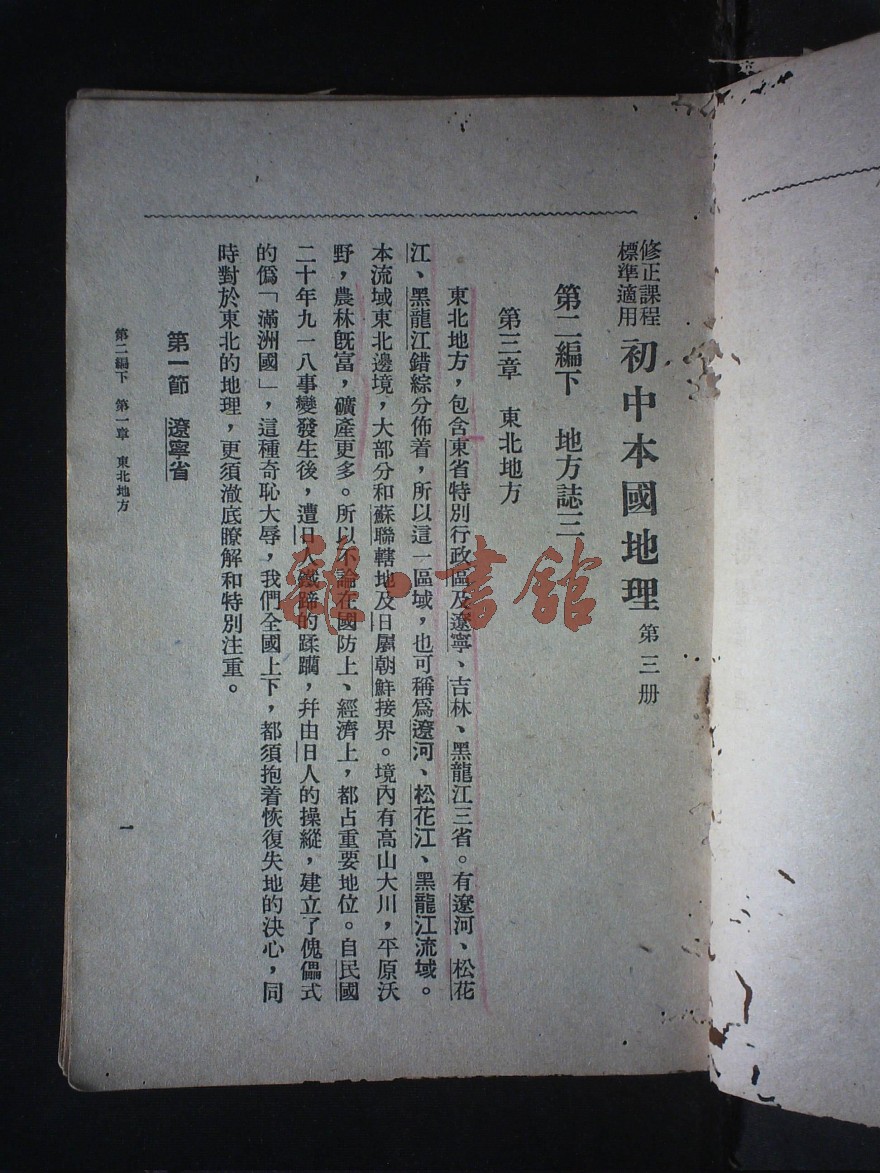 修正課程
標準適用
初中本國地理 第三册
第二編下 地方誌三
第三章 東北地方
東北地方，包含東省特別行政區及遼寧、吉林、黑龍江三省。有遼河、松花
江、黑龍江錯綜分佈着，所以這一區域，也可稱爲遼河、松花江、黑龍江流域。
本流域東北邊境，大部分和蘇聯轄地及日屬朝鮮接界。境內有高山大川，平原沃
野，農林旣富，礦產更多。所以不論在國防上、經濟上，都占重要地位。自民國
二十年九一八事變發生後，遭日人鐵蹄的蹂躪，幷由日人的操縱，建立了傀儡式
的僞「滿洲國」，這種奇恥大辱，我們全國上下，都須抱着恢復失地的決心，同
時對於東北的地理，更須澈底瞭解和特別注重。
第一節 遼寧省
第二編下 第一章 東北地方
一
雜·書館